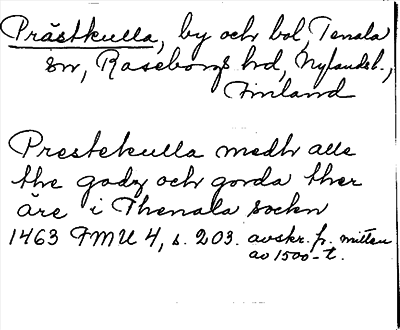 Prästkulla, by och bol, Tenala
sn, Raseborgs hd, Nylandsl.,
Finland
Prestekulla medh alle
the godz och gorda ther
äre i Thenala sockn
1463 FMU 4, s. 203. avskr. fr. mitten
av 1500-t.